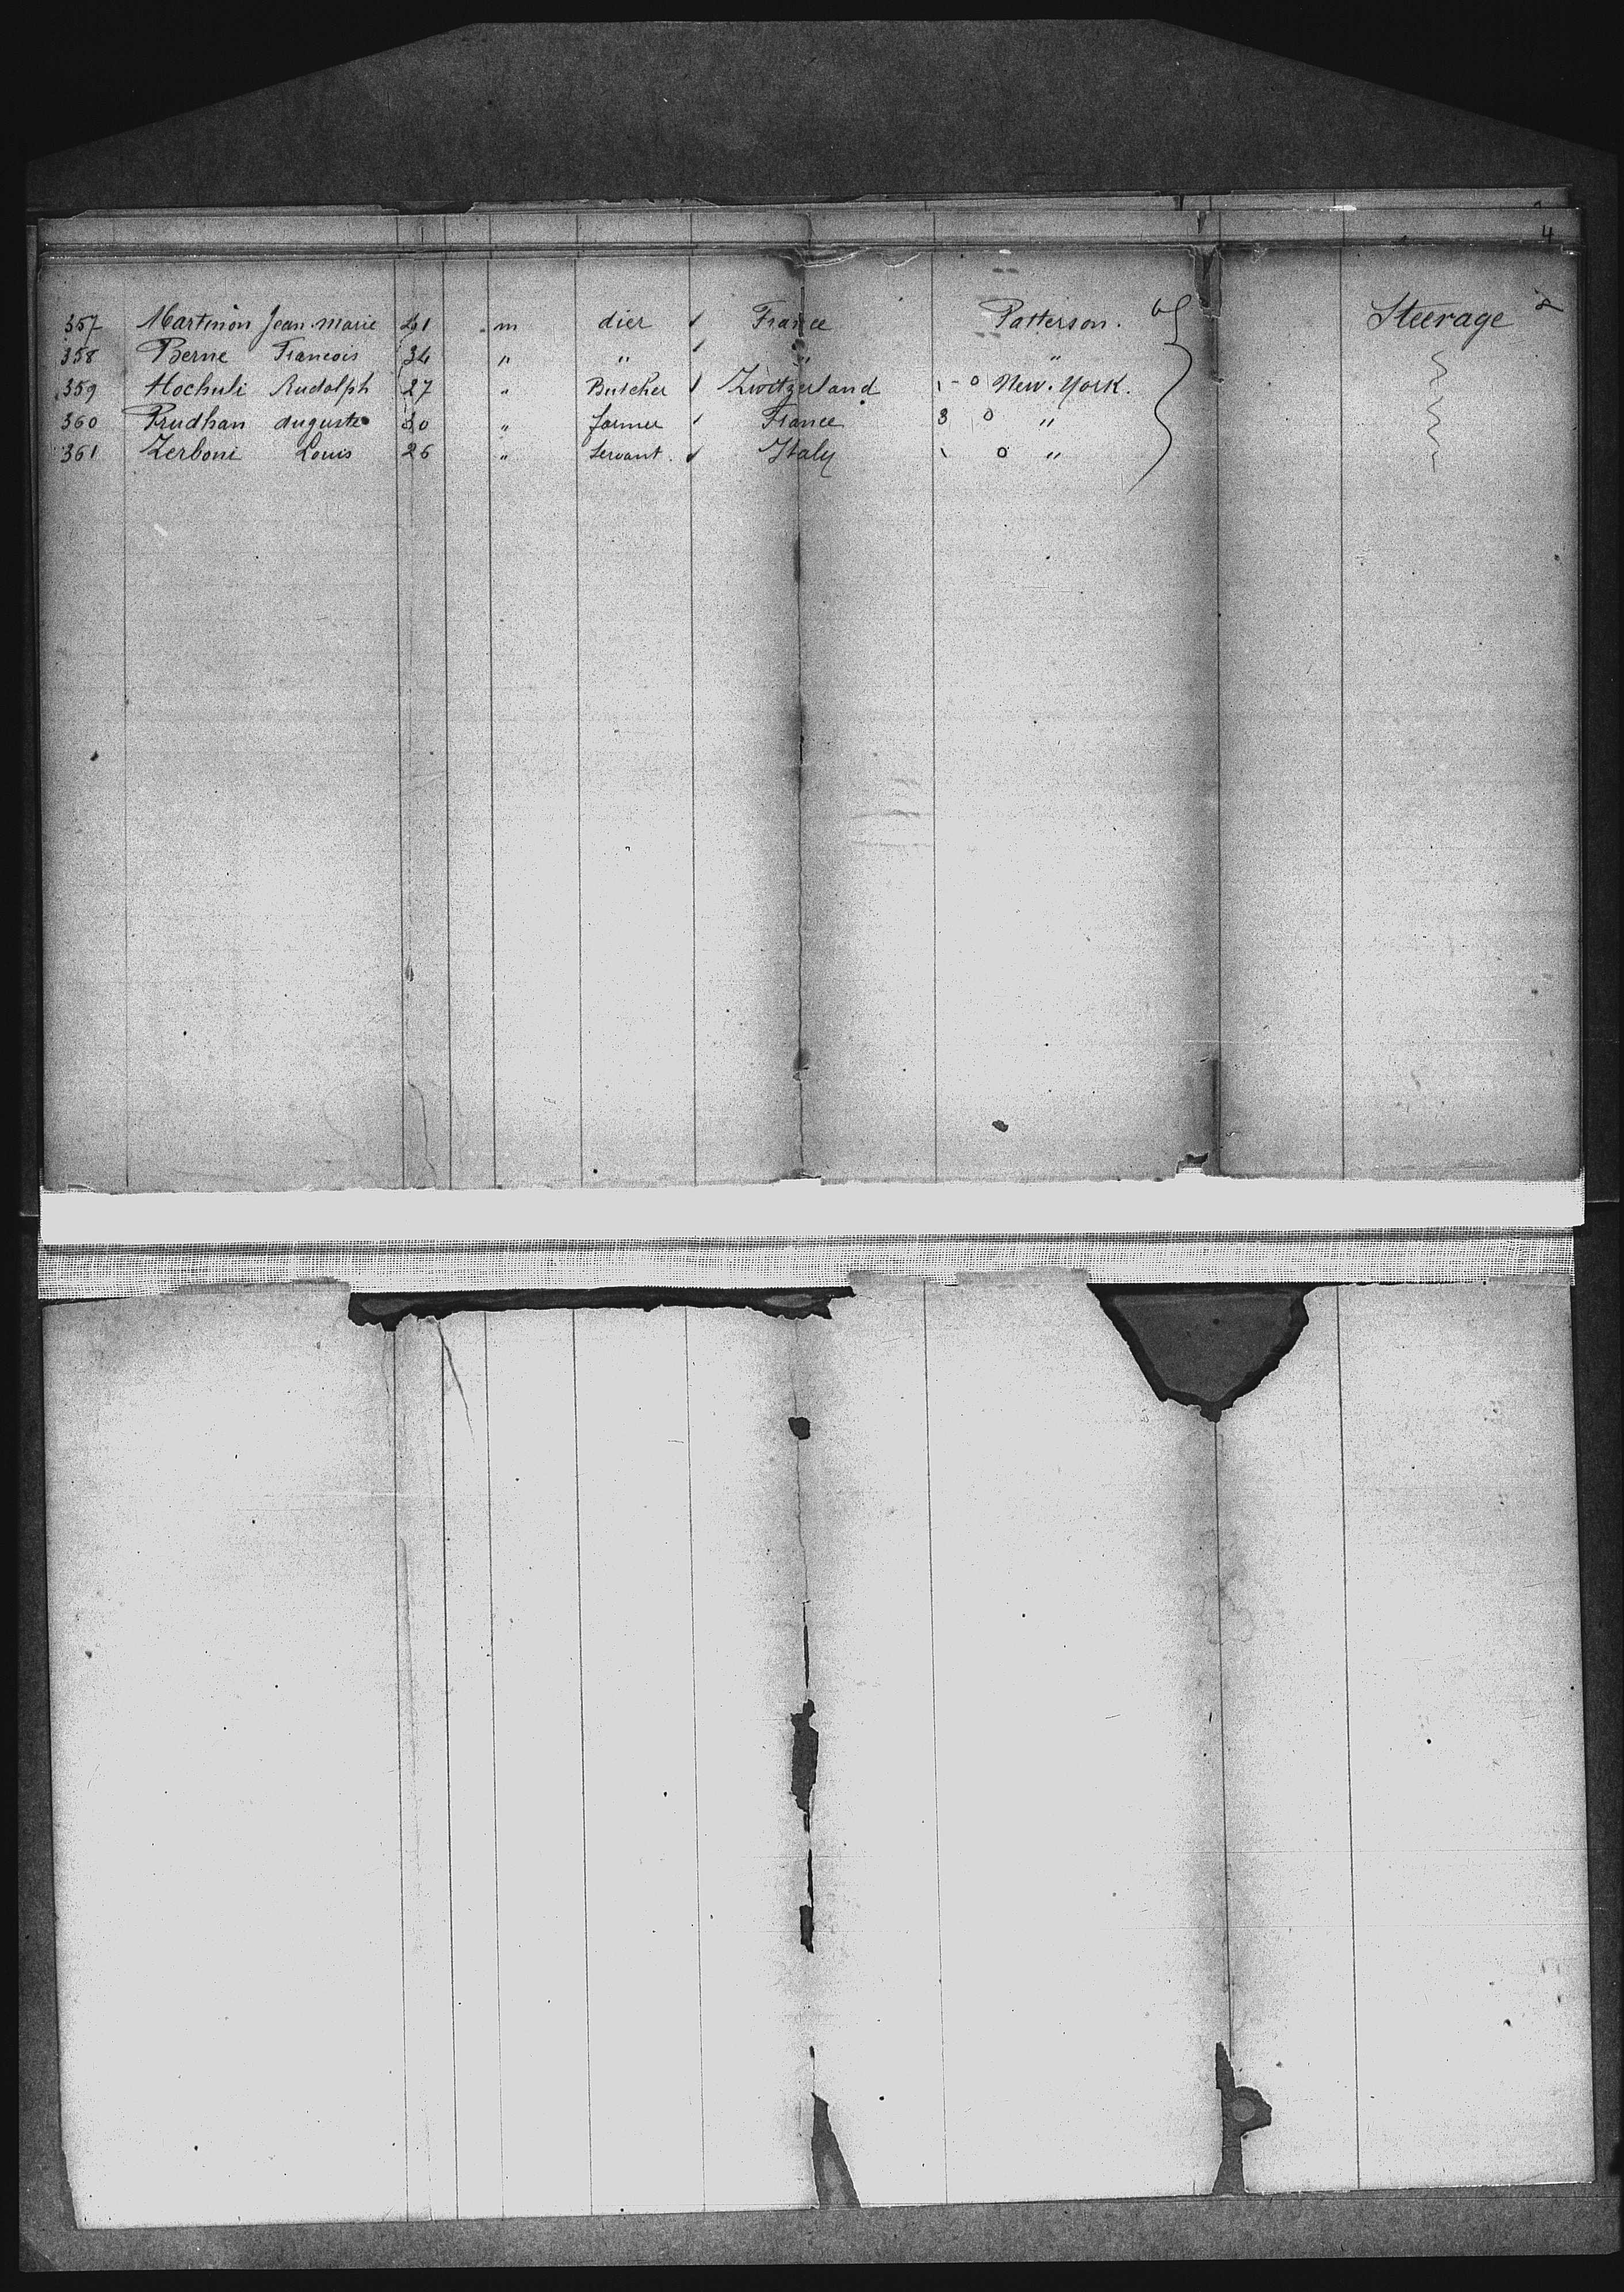 4
357 Martinon Jean-Marie 41 m dier France Patterson. Steerage
358 Berne Francois 34 " " " "
359 Hochuli Rudolph 27 " Butcher Zwitzerland 1 - 0 New-York.
360 Prudhan auguste 30 " farmer France 3 0 "
361 Zerboni Louis 26 " Servant. Italy 1 0 "